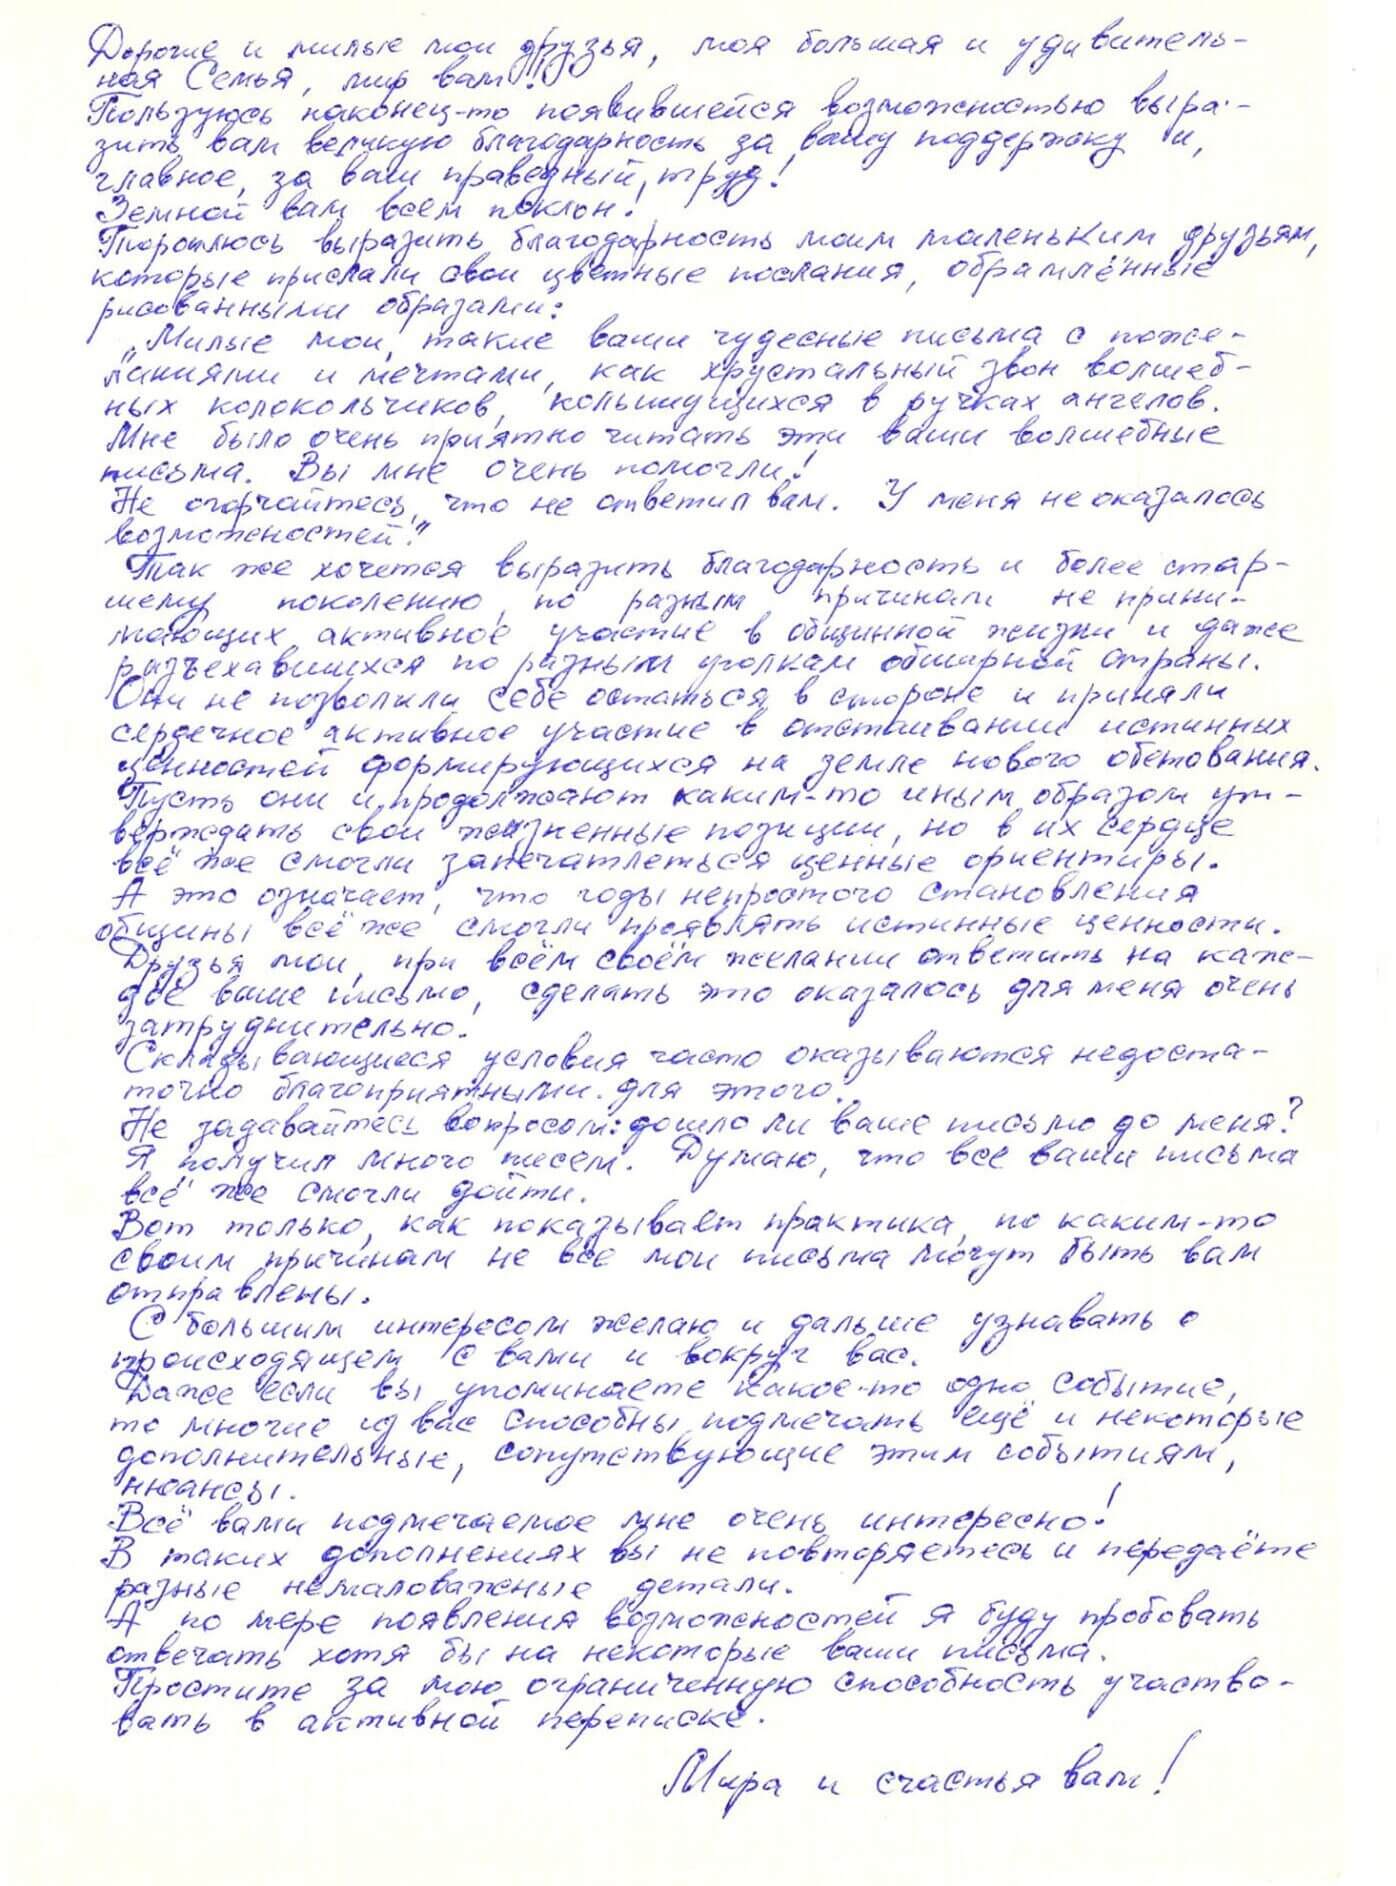 Дорогие и милые мои друзья, моя большая и удивитель-
ная Семья, мир вам!
Пользуюсь наконец-то появившейся возможностью выра-
зить вам великую благодарность за вашу поддержку и,
главное, за ваш праведный труд!
Земной вам всем поклон!
Тороплюсь выразить благодарность моим маленьким друзьям,
которые прислали свои цветные послания, обрамлённые
рисованными образами:
„Милые мои, такие ваши чудесные письма с поже-
ланиями и мечтами, как хрустальный звон волшеб-
ных колокольчиков, колышущихся в ручках ангелов.
Мне было очень приятно читать эти ваши волшебные
письма. Вы мне очень помогли!
Не огорчайтесь, что не ответил вам. У меня не оказалось
возможностей."
Так же хочется выразить благодарность и более стар-
шему поколению, по разным причинам не прини-
мающих активное участие в общинной жизни и даже
разъехавшихся по разным уголкам обширной страны.
Они не позволили себе остаться в стороне и приняли
сердечное активное участие в отстаивании истинных
ценностей формирующихся на земле нового обетования.
Пусть они и продолжают каким-то иным образом ут-
верждать свои жизненные позиции, но в их сердце
всё же смогли запечатлеться ценные ориентиры.
А это означает, что годы непростого становления
общины всё же смогли проявлять истинные ценности.
Друзья мои, при всём своём желании ответить на каж-
дое ваше письмо, сделать это оказалось для меня очень
затруднительно.
Складывающиеся условия часто оказываются недоста-
точно благоприятными для этого.
Не задавайтесь вопросом: дошло ли ваше письмо до меня?
Я получил много писем. Думаю, что все ваши письма
всё же смогли дойти.
Вот только, как показывает практика, по каким-то
своим причинам не все мои письма могут быть вам
отправлены.
С большим интересом желаю и дальше узнавать о
происходящем с вами и вокруг вас.
Даже если вы упоминаете какое-то одно событие,
то многие из вас способны подмечать ещё и некоторые
дополнительные, сопутствующие этим событиям,
нюансы.
Всё вами подмечаемое мне очень интересно!
В таких дополнениях вы не повторяетесь и передаёте
разные немаловажные детали.
А по мере появления возможностей я буду пробовать
отвечать хотя бы на некоторые ваши письма.
Простите за мою ограниченную способность участво-
вать в активной переписке.
Мира и счастья вам!